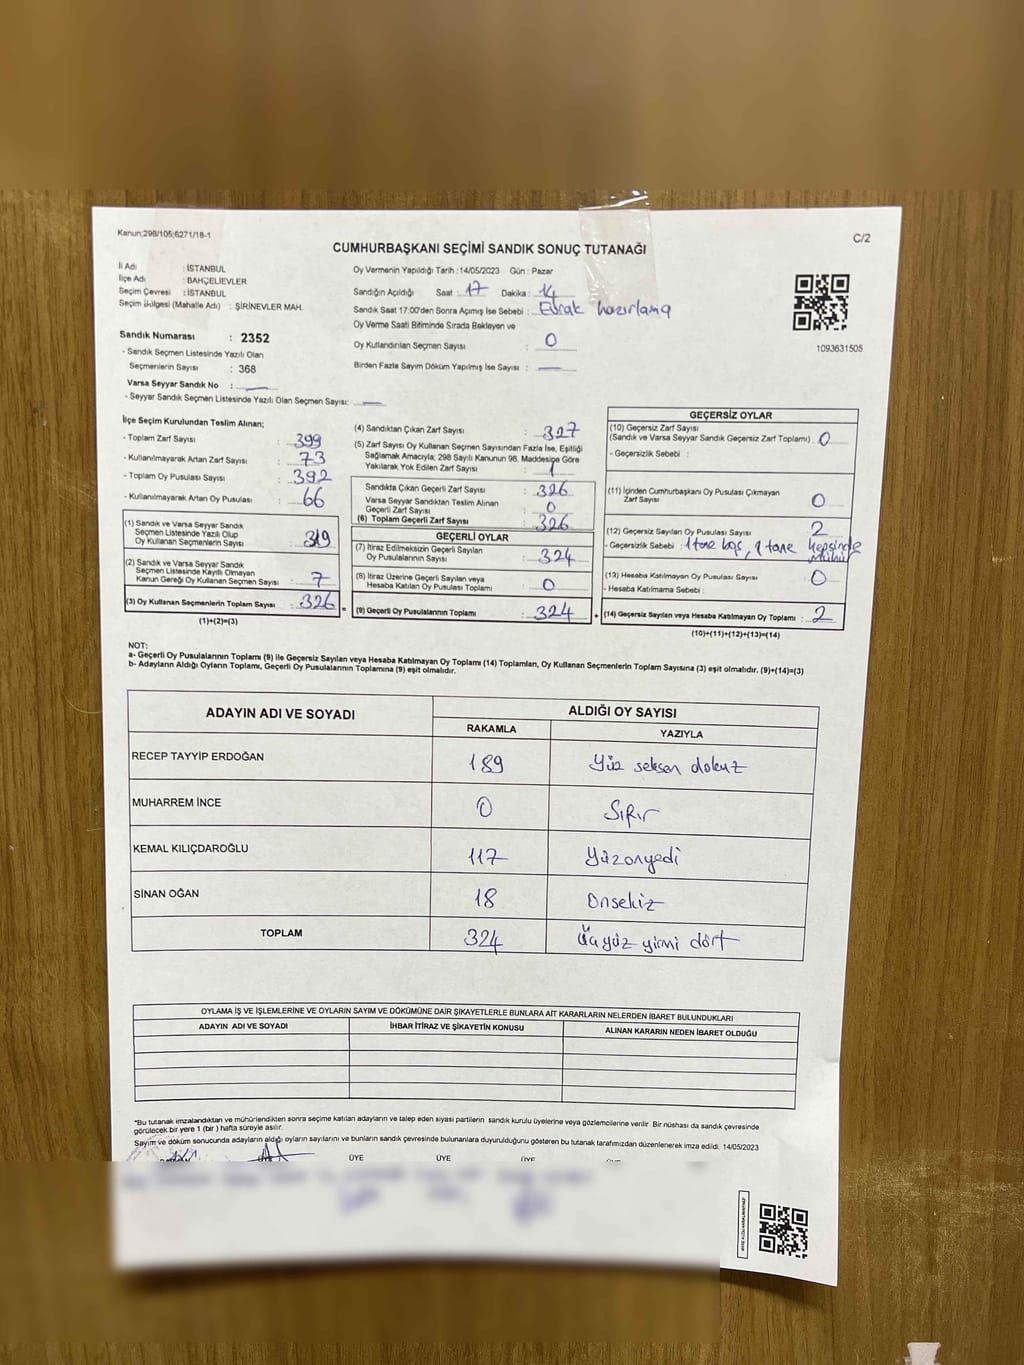 Kanun;298/105;6271/18-1
C/2
CUMHURBAŞKANI SEÇİMİ SANDIK SONUÇ TUTANAĞI
İl Adı : İSTANBUL
İlçe Adı : BAHÇELİEVLER
Seçim Çevresi : İSTANBUL
Seçim Bölgesi (Mahalle Adı) : ŞİRİNEVLER MAH.
Sandık Numarası : 2352
- Sandık Seçmen Listesinde Yazılı Olan
Seçmenlerin Sayısı : 368
Varsa Seyyar Sandık No :
- Seyyar Sandık Seçmen Listesinde Yazılı Olan Seçmen Sayısı:
Oy Vermenin Yapıldığı Tarih : 14/05/2023 Gün : Pazar
Sandığın Açıldığı Saat : 17 Dakika : 14
Sandık Saat 17:00'den Sonra Açılmış İse Sebebi : Evrak hazırlama
Oy Verme Saati Bitiminde Sırada Bekleyen ve
Oy Kullandırılan Seçmen Sayısı : 0
Birden Fazla Sayım Döküm Yapılmış İse Sayısı :
1093631505
İlçe Seçim Kurulundan Teslim Alınan;
- Toplam Zarf Sayısı : 399
- Kullanılmayarak Artan Zarf Sayısı : 73
- Toplam Oy Pusulası Sayısı : 392
- Kullanılmayarak Artan Oy Pusulası : 66
(1) Sandık ve Varsa Seyyar Sandık
Seçmen Listesinde Yazılı Olup
Oy Kullanan Seçmenlerin Sayısı : 319
(2) Sandık ve Varsa Seyyar Sandık
Seçmen Listesinde Kayıtlı Olmayan
Kanun Gereği Oy Kullanan Seçmen Sayısı : 7
(3) Oy Kullanan Seçmenlerin Toplam Sayısı : 326
(1)+(2)=(3)
(4) Sandıktan Çıkan Zarf Sayısı : 327
(5) Zarf Sayısı Oy Kullanan Seçmen Sayısından Fazla İse, Eşitliği
Sağlamak Amacıyla; 298 Sayılı Kanunun 98. Maddesine Göre
Yakılarak Yok Edilen Zarf Sayısı : 1
Sandıkta Çıkan Geçerli Zarf Sayısı : 326
Varsa Seyyar Sandıktan Teslim Alınan
Geçerli Zarf Sayısı : 0
(6) Toplam Geçerli Zarf Sayısı : 326
GEÇERLİ OYLAR
(7) İtiraz Edilmeksizin Geçerli Sayılan
Oy Pusulalarının Sayısı : 324
(8) İtiraz Üzerine Geçerli Sayılan veya
Hesaba Katılan Oy Pusulası Toplamı : 0
(9) Geçerli Oy Pusulalarının Toplamı : 324
GEÇERSİZ OYLAR
(10) Geçersiz Zarf Sayısı
(Sandık ve Varsa Seyyar Sandık Geçersiz Zarf Toplamı) : 0
- Geçersizlik Sebebi :
(11) İçinden Cumhurbaşkanı Oy Pusulası Çıkmayan
Zarf Sayısı : 0
(12) Geçersiz Sayılan Oy Pusulası Sayısı : 2
- Geçersizlik Sebebi : 1 tane boş, 1 tane hepsinde
mühür
(13) Hesaba Katılmayan Oy Pusulası Sayısı : 0
- Hesaba Katılmama Sebebi :
(14) Geçersiz Sayılan veya Hesaba Katılmayan Oy Toplamı : 2
(10)+(11)+(12)+(13)=(14)
NOT:
a- Geçerli Oy Pusulalarının Toplamı (9) ile Geçersiz Sayılan veya Hesaba Katılmayan Oy Toplamı (14) Toplamları, Oy Kullanan Seçmenlerin Toplam Sayısına (3) eşit olmalıdır. (9)+(14)=(3)
b- Adayların Aldığı Oyların Toplamı, Geçerli Oy Pusulalarının Toplamına (9) eşit olmalıdır.
ADAYIN ADI VE SOYADI ALDIĞI OY SAYISI
RAKAMLA YAZIYLA
RECEP TAYYİP ERDOĞAN 189 Yüz seksen dokuz
MUHARREM İNCE 0 Sıfır
KEMAL KILIÇDAROĞLU 117 Yüzonyedi
SİNAN OĞAN 18 Onsekiz
TOPLAM 324 Üçyüz yirmi dört
OYLAMA İŞ VE İŞLEMLERİNE VE OYLARIN SAYIM VE DÖKÜMÜNE DAİR ŞİKAYETLERLE BUNLARA AİT KARARLARIN NELERDEN İBARET BULUNDUKLARI
ADAYIN ADI VE SOYADI İHBAR İTİRAZ VE ŞİKAYETİN KONUSU ALINAN KARARIN NEDEN İBARET OLDUĞU
*Bu tutanak imzalandıktan ve mühürlendikten sonra seçime katılan adayların ve talep eden siyasi partilerin sandık kurulu üyelerine veya gözlemcilerine verilir. Bir nüshası da sandık çevresinde
görülecek bir yere 1 (bir) hafta süreyle asılır.
Sayım ve döküm sonucunda adayların aldığı oyların sayılarını ve bunların sandık çevresinde bulunanlara duyurulduğunu gösteren bu tutanak tarafımızdan düzenlenerek imza edildi. 14/05/2023
ÜYE ÜYE ÜYE